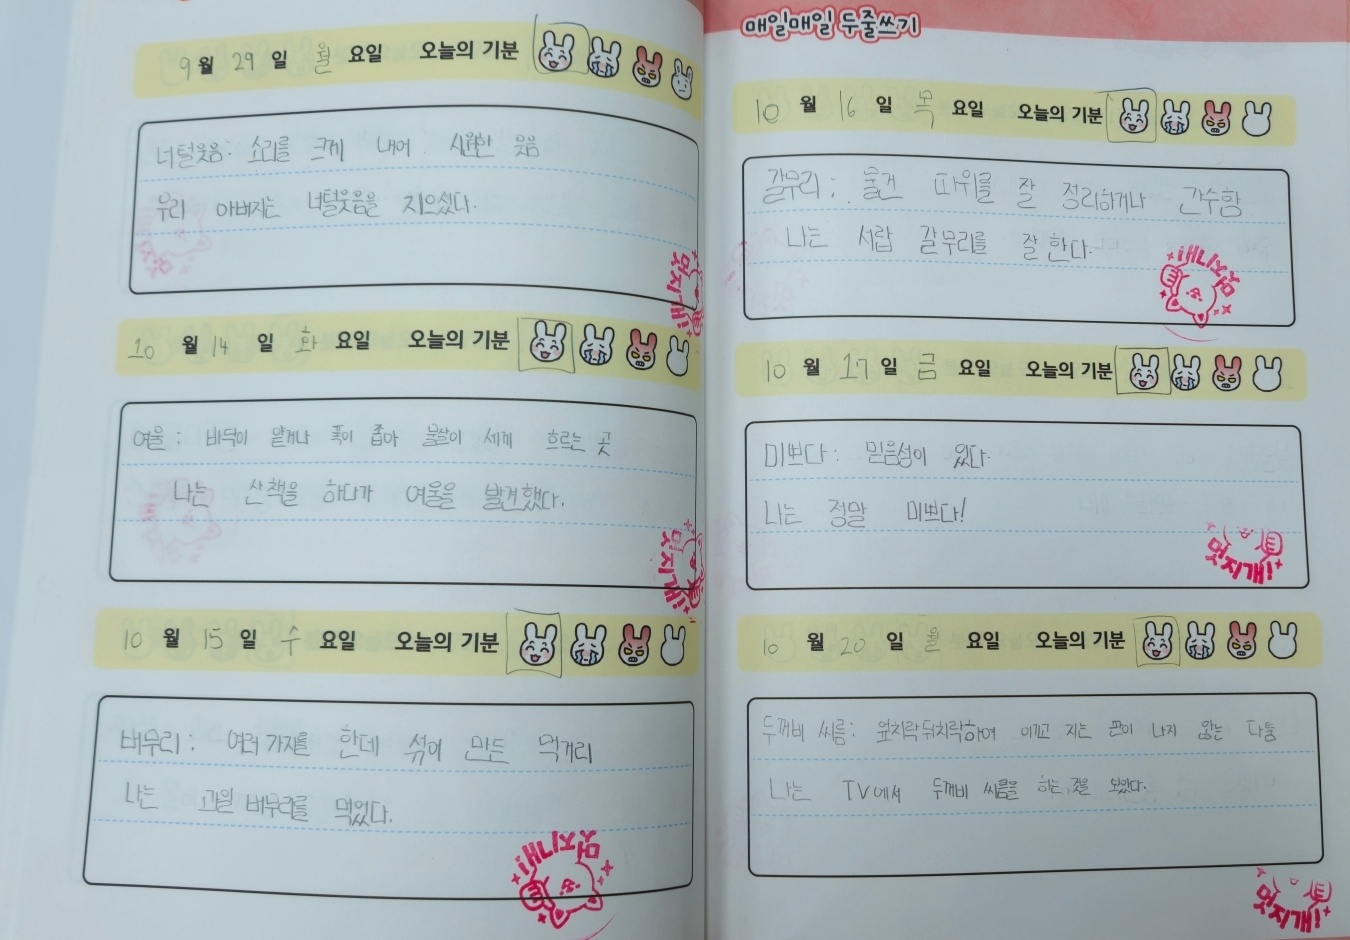 9월 29일 월요일 오늘의 기분
너털웃음: 소리를 크게 내어 시원한 웃음
우리 아버지는 너털웃음을 지으셨다.
멋지개!
10월 14일 화요일 오늘의 기분
여울 : 바닥이 얕거나 폭이 좁아 물살이 세게 흐르는 곳
나는 산책을 하다가 여울을 발견했다.
멋지개!
10월 15일 수요일 오늘의 기분
버무리 : 여러 가지를 한데 섞어 만든 먹거리
나는 과일 버무리를 먹었다.
멋지개!
매일매일 두줄쓰기
10월 16일 목요일 오늘의 기분
갈무리 : 물건 따위를 잘 정리하거나 간수함
나는 서랍 갈무리를 잘 한다.
멋지개!
10월 17일 금요일 오늘의 기분
미쁘다 : 믿음성이 있다.
나는 정말 미쁘다!
멋지개!
10월 20일 월요일 오늘의 기분
두꺼비 씨름 : 엎치락뒤치락하여 이기고 지는 끝이 나지 않는 다툼
나는 TV에서 두꺼비 씨름을 하는 것을 보았다.
멋지개!